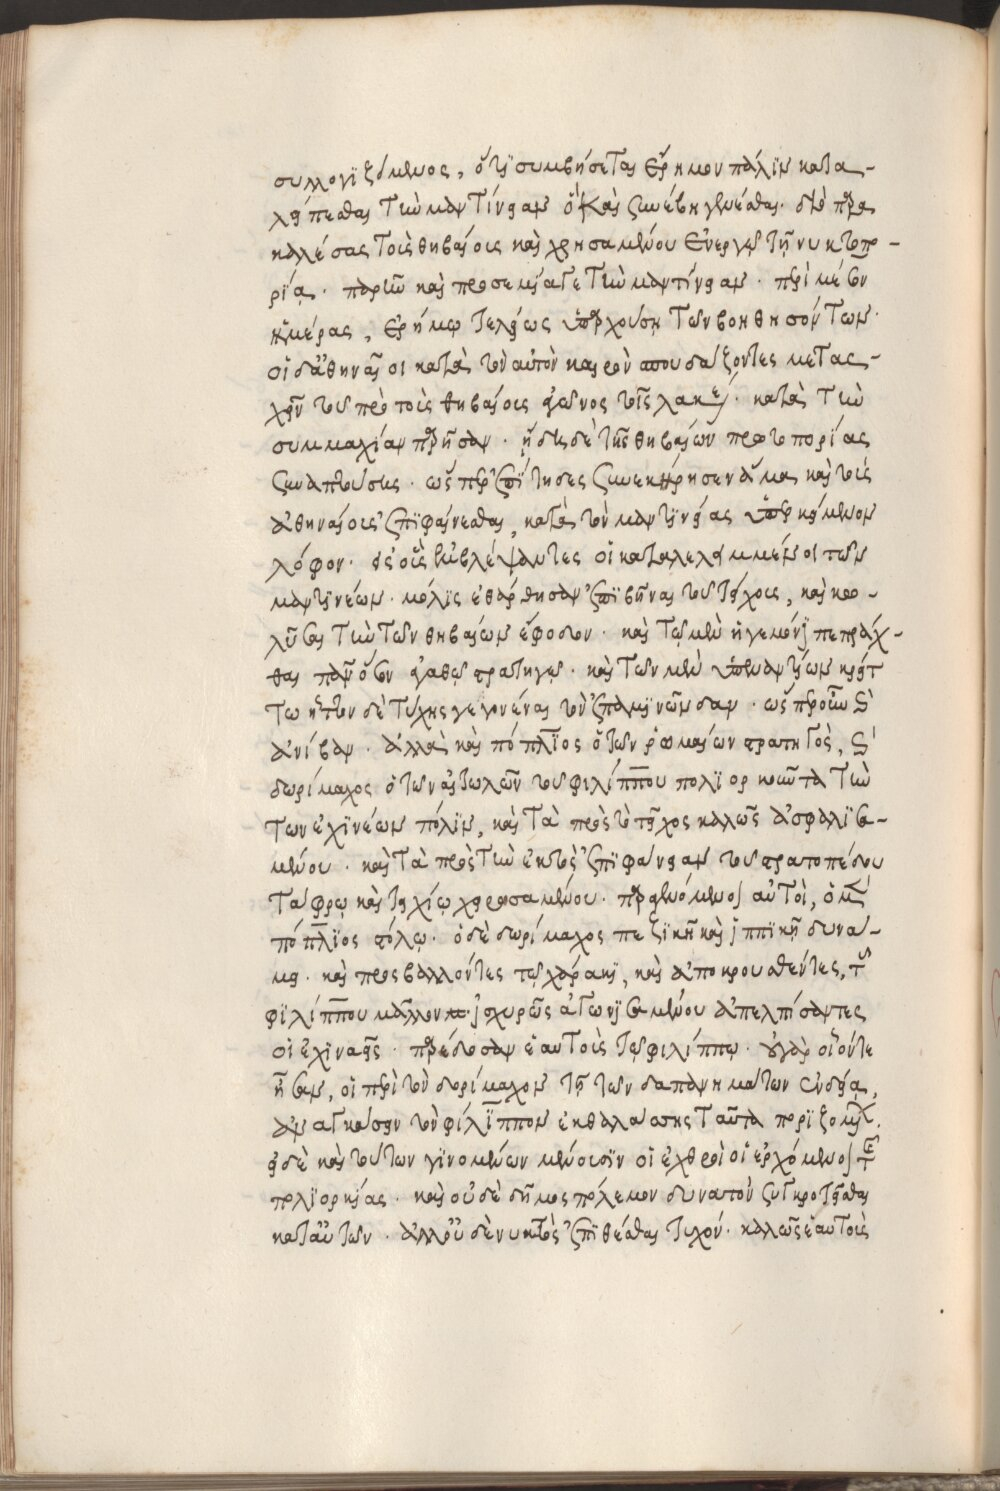 συλλογϊζόμενος, ὅτϊ συμβήσεται ἔρημον πάλϊν κατα-
λείπεσθαι τὴν μαντίνειαν ὃ καὶ συνέβη γενέσθαι. διὸ παρα
καλέσας τοὺς θηβαίους καὶ χρησαμένου ἐνεργεῖ τῆ νυκτοπο-
ρία. παρῆν καὶ προσέμϊσγε τὴν μαντίνειαν. περὶ μέσον
ἡμέρας, ἐρήμω τελείως ὑπάρχουση τῶν βοηθησόντων.
οἱ δ' ἀθηναῖοι κατὰ τὸν αὐτὸν καιρὸν σπουδάζοντες μετασ-
χεῖν τοῦ πρὸ τοὺς θηβαίους ἀγῶνος τοῖς λακε. κατὰ τὴν
συμμαχίαν παρῆσαν. ἤδη δὲ τῆς θηβαίων πρωτοπορίας
συναπτούσης. ὥσπερ ἐπϊτηδες συνεκύρησεν ἅμα καὶ τοὺς
ἀθηναίους ἐπϊφαίνεσθαι, κατὰ τὸν μαντϊνείας ὑπερκείμενον
λόφον. εἰς οὓς ἐμβλέψαντες οἱ καταλελειμμένοι τῶν
μαντϊνέων. μόλϊς ἐθάρσησαν ἐπϊβῆναι τοῦ τείχους, καὶ κω-
λῦσαι τὴν τῶν θηβαίων ἔφοδον. καὶ τῶ μὲν ἡγεμόνϊ πεπράχ-
θαι πᾶν ὅσον ἀγαθῶ στρατηγῶ. καὶ τῶν μὲν ὑπεναντϊων κρείτ
τω ἥττον δὲ τύχης γεγονέναι τὸν ἐπαμϊνῶνδαν. ὥσπερ καὶ
ἀνίβαν. ἀλλὰ καὶ πόπλϊος ὁ τῶν ῥωμαίων στρατηγὸς, καὶ
δωρίμαχος ὁ τῶν αἰτωλῶν τοῦ φιλίππου πολϊορκοῦντα τὴν
τῶν ἐχϊνέων πόλϊν, καὶ τὰ πρὸς τὸ τεῖχος καλῶς ἀσφαλϊσα-
μένου. καὶ τὰ πρὸς τὴν ἐκτὸς ἐπϊφάνειαν τοῦ στρατοπέδου
τάφρω καὶ τειχίω χειρωσαμένου. παραγενόμενοι αὐτοὶ, ὁ μὲν
πόπλϊος στόλω. ὁ δὲ δωρίμαχος πεζϊκῆ καὶ ἱππϊκῆ δυνά-
μει. καὶ προσβαλλόντες τῶ χάρακϊ, καὶ ἀποκρουσθέντες, τοῦ
φϊλίππου μᾶλλον ἰσχυρῶς ἀγωνϊσαμένου ἀπελπίσαντες
οἱ ἐχϊναεῖς. παρέδοσαν ἑαυτοὺς τῶ φιλίππω. οὐ γὰρ οἷοί τε
ἦσαν, οἱ περὶ τὸν δορίμαχον τῆ τῶν δαπανημάτων ἐνδεία,
ἀναγκάζειν τὸν φίλϊππον ἐκ θαλάσσης ταῦτα πορϊζομεν.
εἰ δὲ καὶ τούτων γϊνομένων μένουσϊν οἱ ἐχθροὶ οἱ ἐρχόμενοι ἐπὶ
πολϊορκίας. καὶ οὐδὲ δῆμος πόλεμον δυνατὸν συγκροτεῖσθαι
κατ' αὐτῶν. ἀλλ' οὐδὲ νυκτὸς ἐπϊθέσθαι τυχόν. καλῶς ἑαυτοὺς